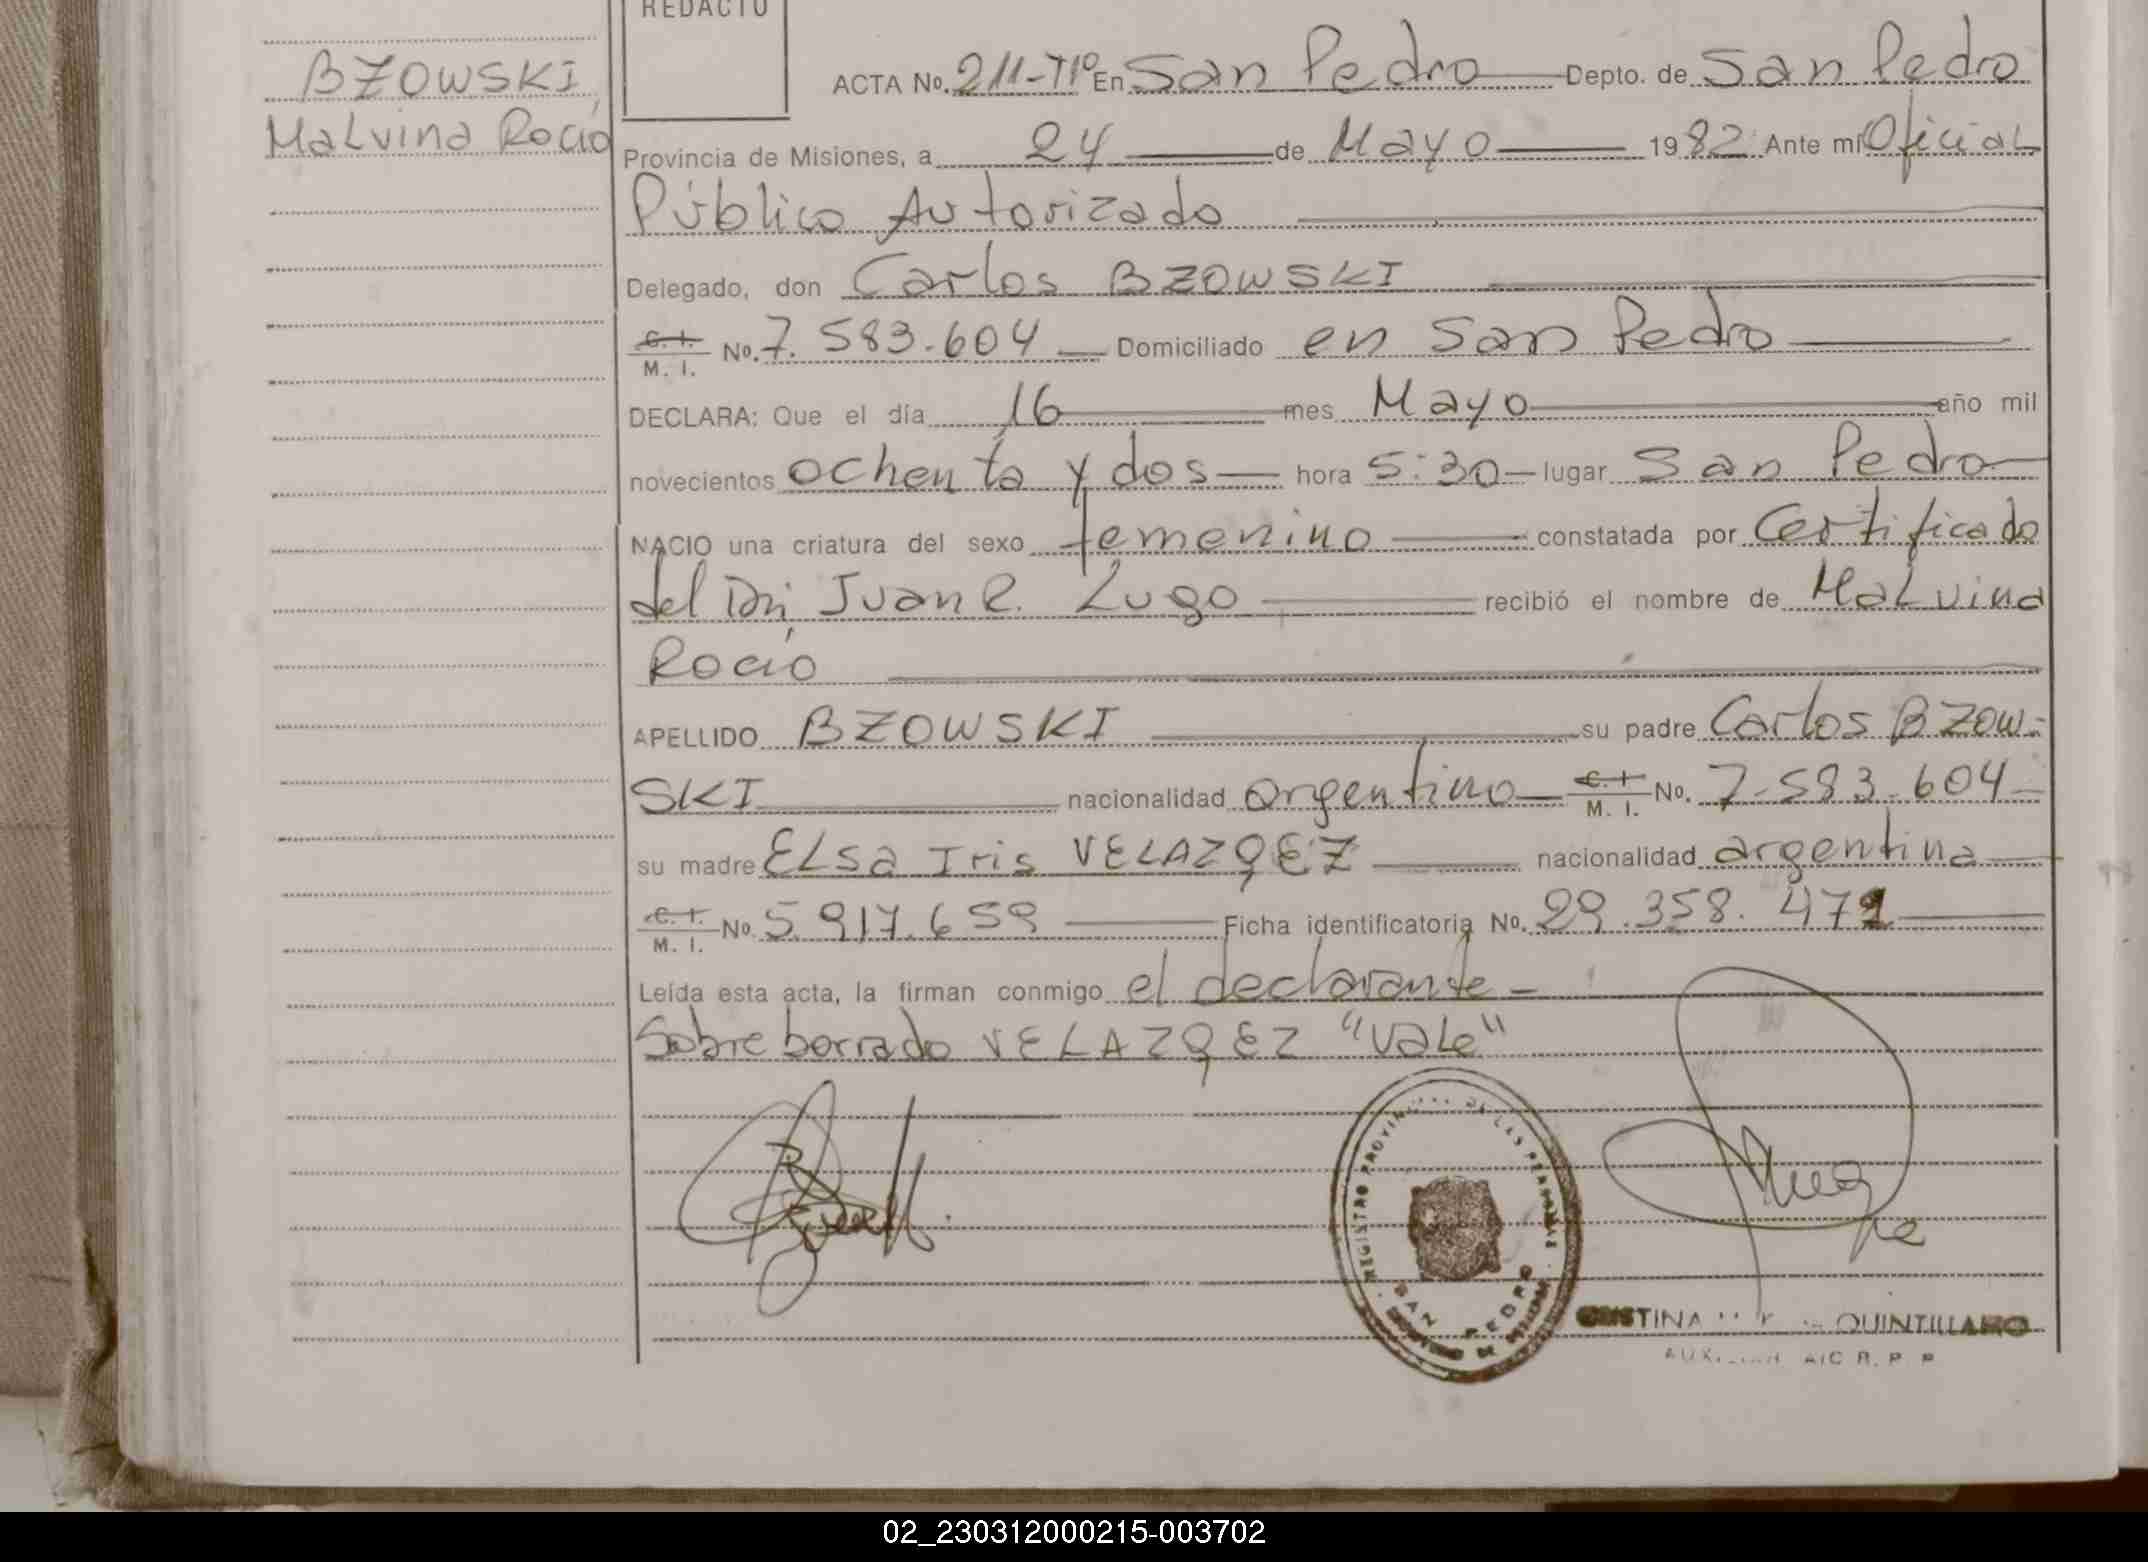 REDACTO
BZOWSKI,
Malvina Rocío
ACTA No. 211-Tº I En San Pedro Depto. de San Pedro
Provincia de Misiones, a 24 de Mayo 1982 Ante mí Oficial
Público Autorizado
Delegado, don Carlos BZOWSKI
C. I. / M. I. No. 7.583.604 Domiciliado en San Pedro
DECLARA: Que el día 16 mes Mayo año mil
novecientos ochenta y dos hora 5:30 lugar San Pedro
NACIO una criatura del sexo femenino constatada por Certificado
del Dr. Juan R. Lugo recibió el nombre de Malvina
Rocío
APELLIDO BZOWSKI su padre Carlos BZOW-
SKI nacionalidad argentino C. I. / M. I. No. 7.583.604
su madre Elsa Iris VELAZQEZ nacionalidad argentina
C. I. / M. I. No. 5.917.659 Ficha identificatoria No. 29.358.471
Leída esta acta, la firman conmigo el declarante -
Sobre borrado VELAZQEZ "Vale"
REGISTRO PROVINCIAL DE LAS PERSONAS
SAN PEDRO
CRISTINA QUINTILLANO